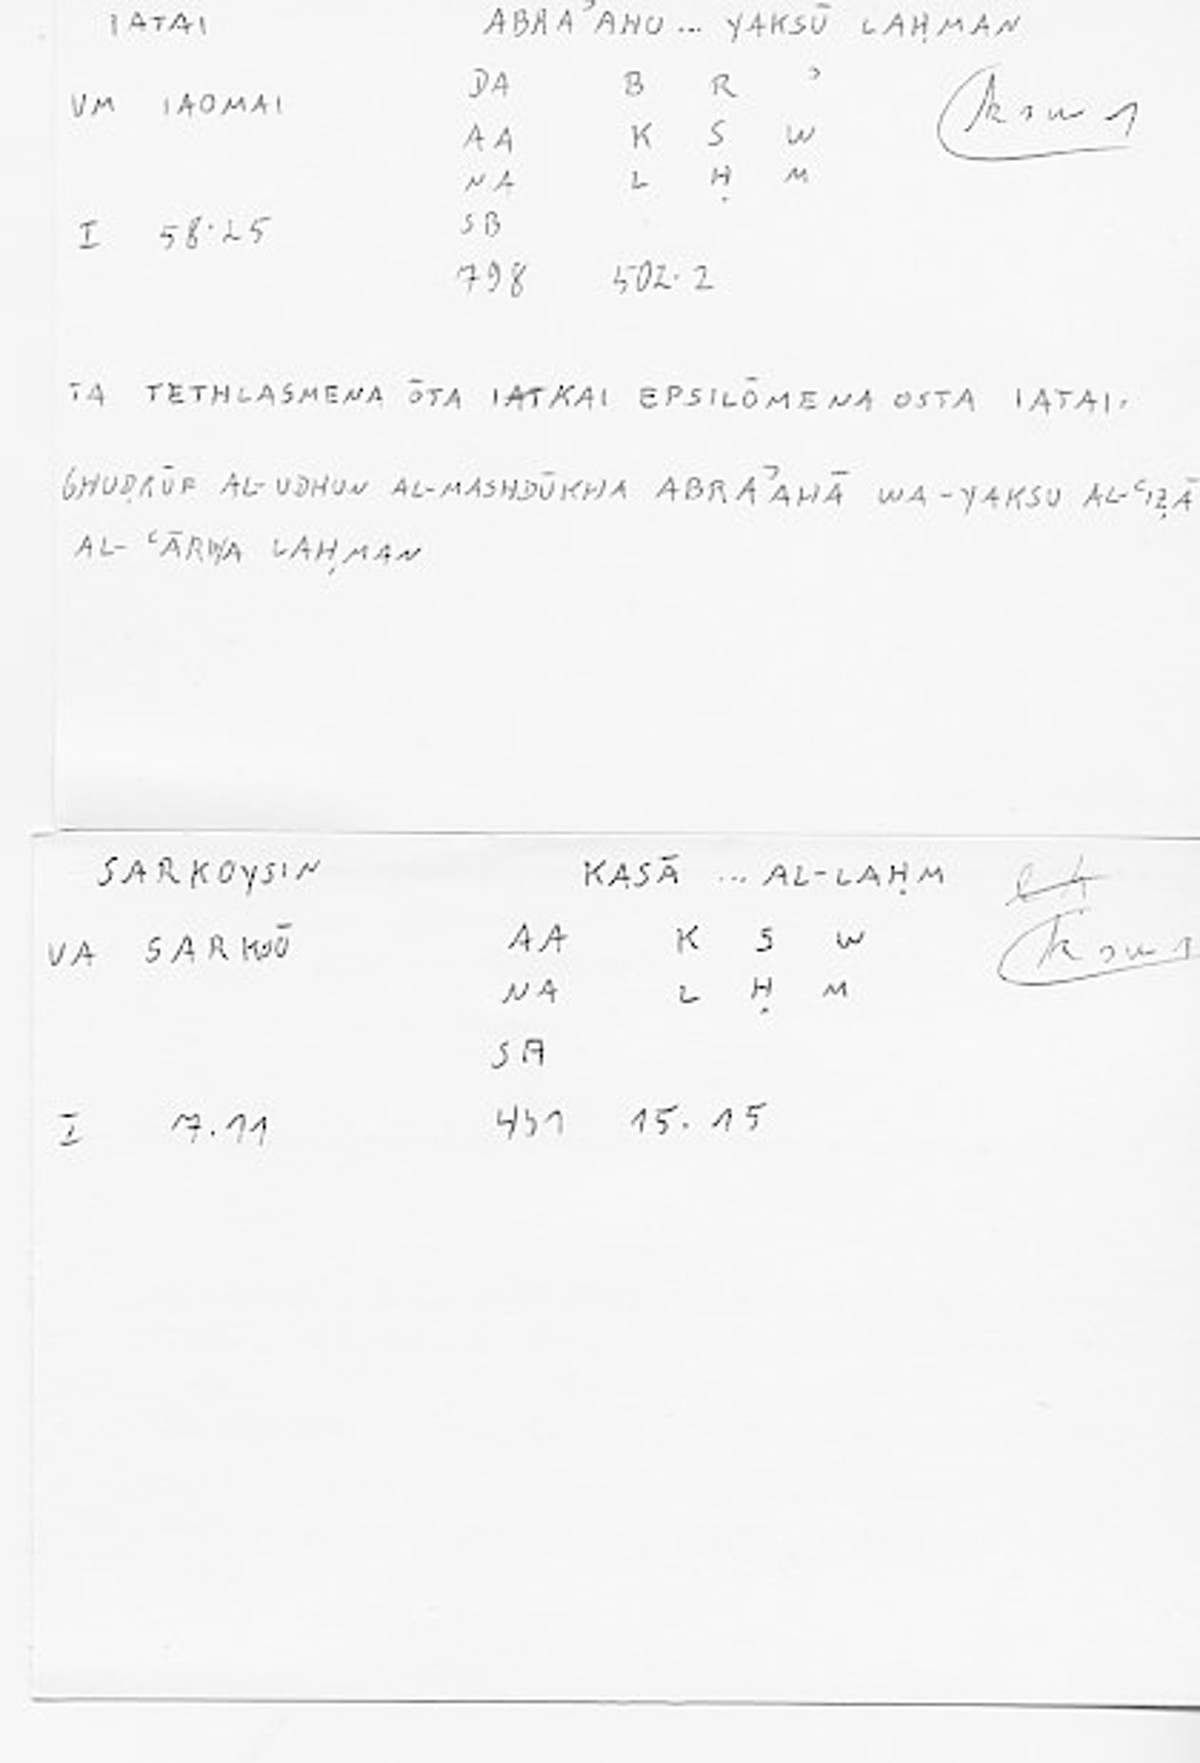 IATAI ABRAʾAHU ... YAKSŪ LAḤMAN
VM IAOMAI DA B R ʾ ksw 1
AA K S W
NA L Ḥ M
I 58.25 SB
798 502.2
TA TETHLASMENA ŌTA IATKAI EPSILŌMENA OSTA IATAI.
GHUḌRŪF AL-UDHUN AL-MASHDŪKHA ABRAʾAHĀ WA-YAKSU AL-ʿIẒĀ
AL-ʿĀRIYA LAḤMAN
SARKOYSIN KASĀ ... AL-LAḤM
VA SARKOŌ AA K S W ksw 1
NA L Ḥ M
SA
I 7.11 431 15.15